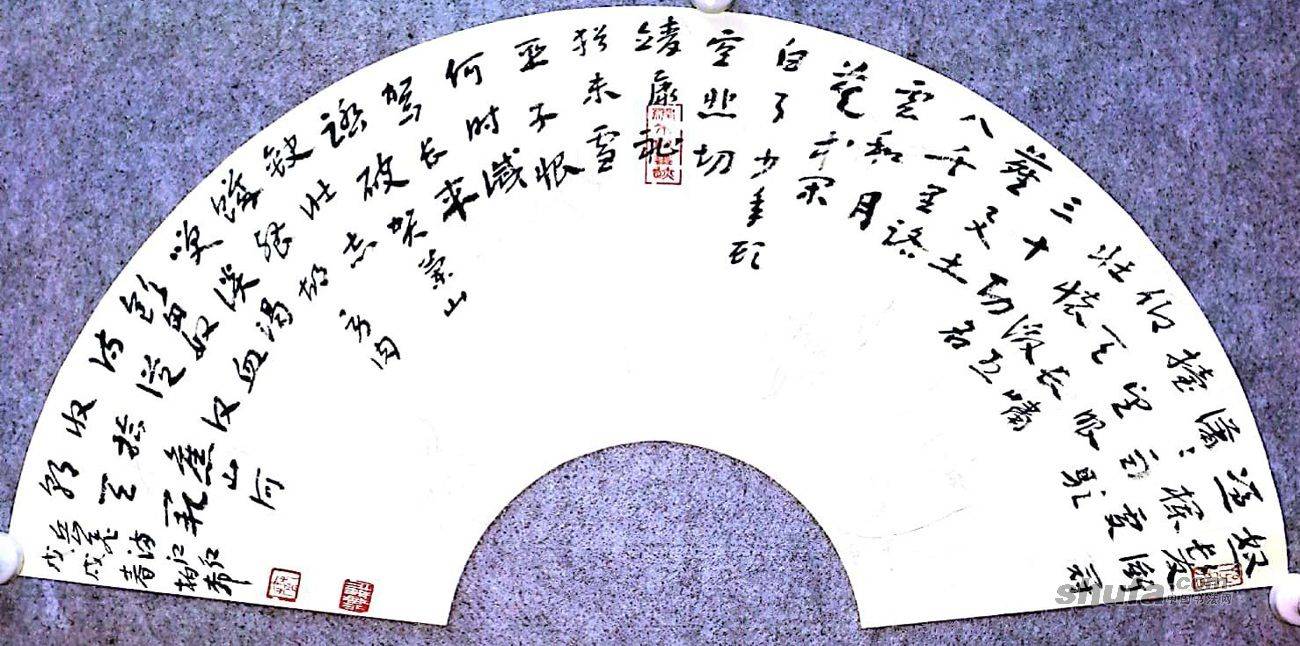 怒髮衝冠
憑欄處
瀟瀟雨歇
擡望眼
仰天長嘯
壯懷激烈
三十功名
塵與土
八千里路
雲和月
莫等閒
白了少年頭
空悲切
靖康恥
猶未雪
臣子恨
何時滅
駕長車
踏破賀蘭山
缺壯志
飢餐胡虜肉
笑談渴
飲匈奴血
待從
收拾舊山河
朝天闕
岳飛詩
戊戌
shufa.com
中国书法网